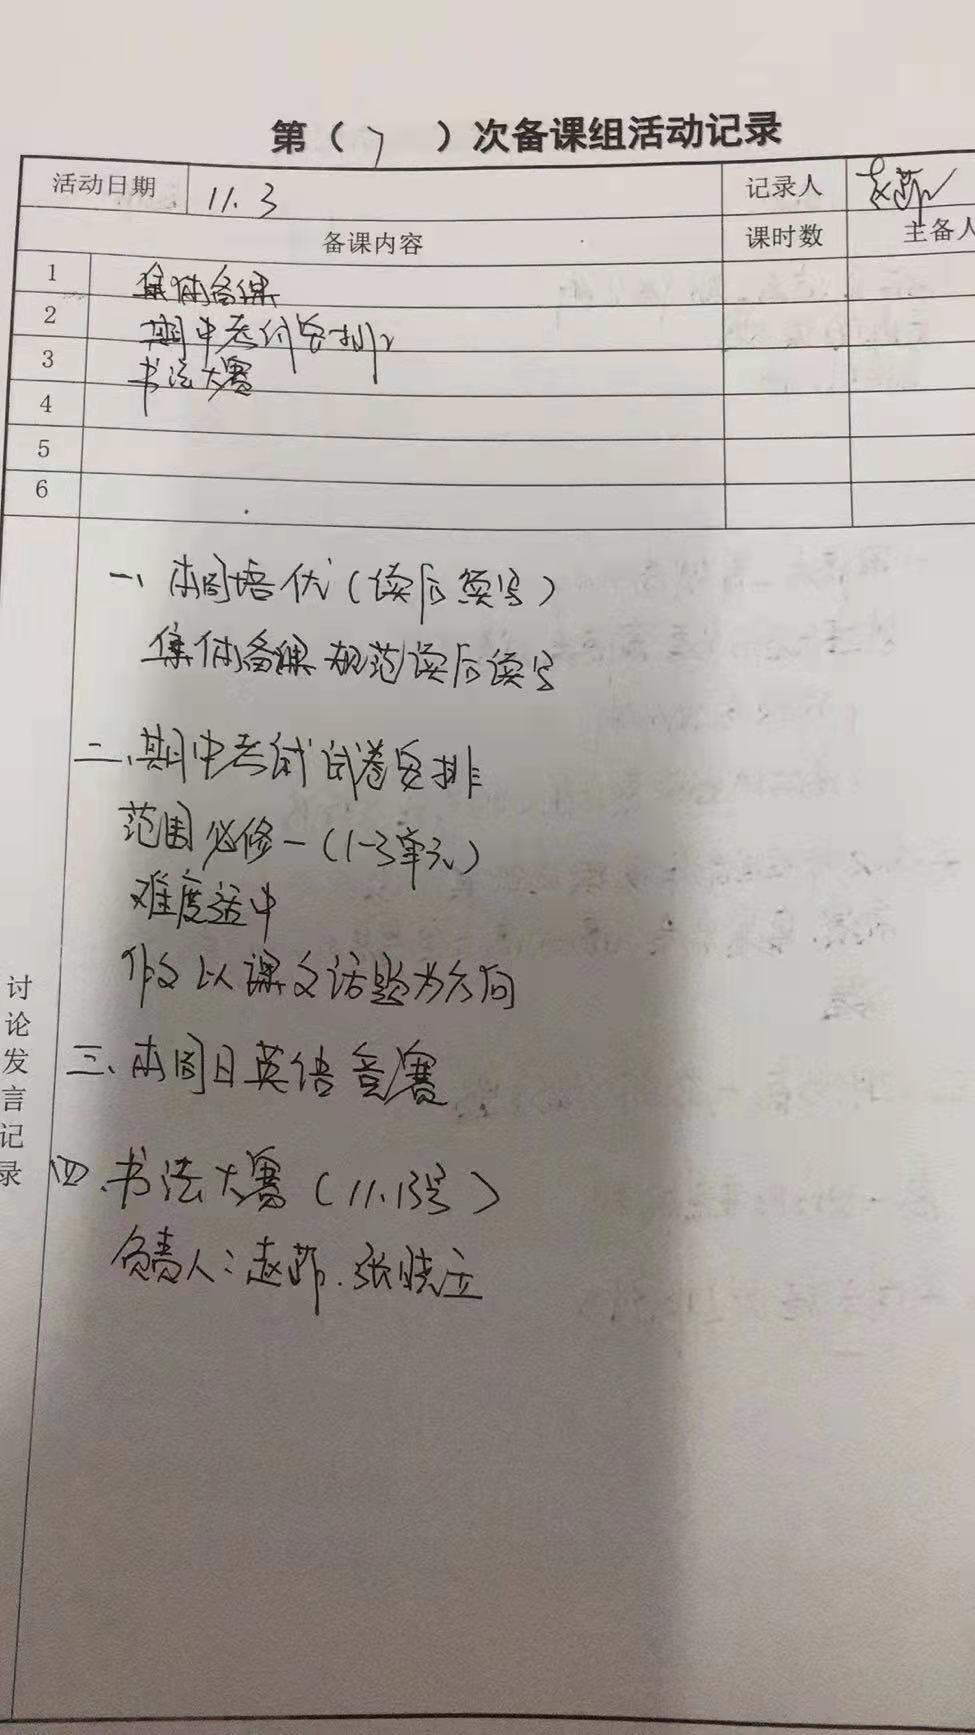 第（7）次备课组活动记录
活动日期 11.3 记录人 赵茹
备课内容 课时数 主备人
1 集体备课
2 期中考试安排
3 书法大赛
4
5
6
讨论发言记录
一、本周培优（读后续写）
集体备课 规范读后读写
二、期中考试试卷安排
范围必修一（1-3单元）
难度适中
作文以课文话题为方向
三、本周日英语竞赛
四、书法大赛（11.13号）
负责人：赵茹、张晓立